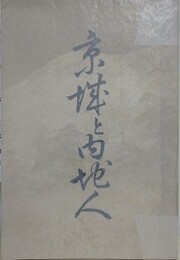 京城と内地人